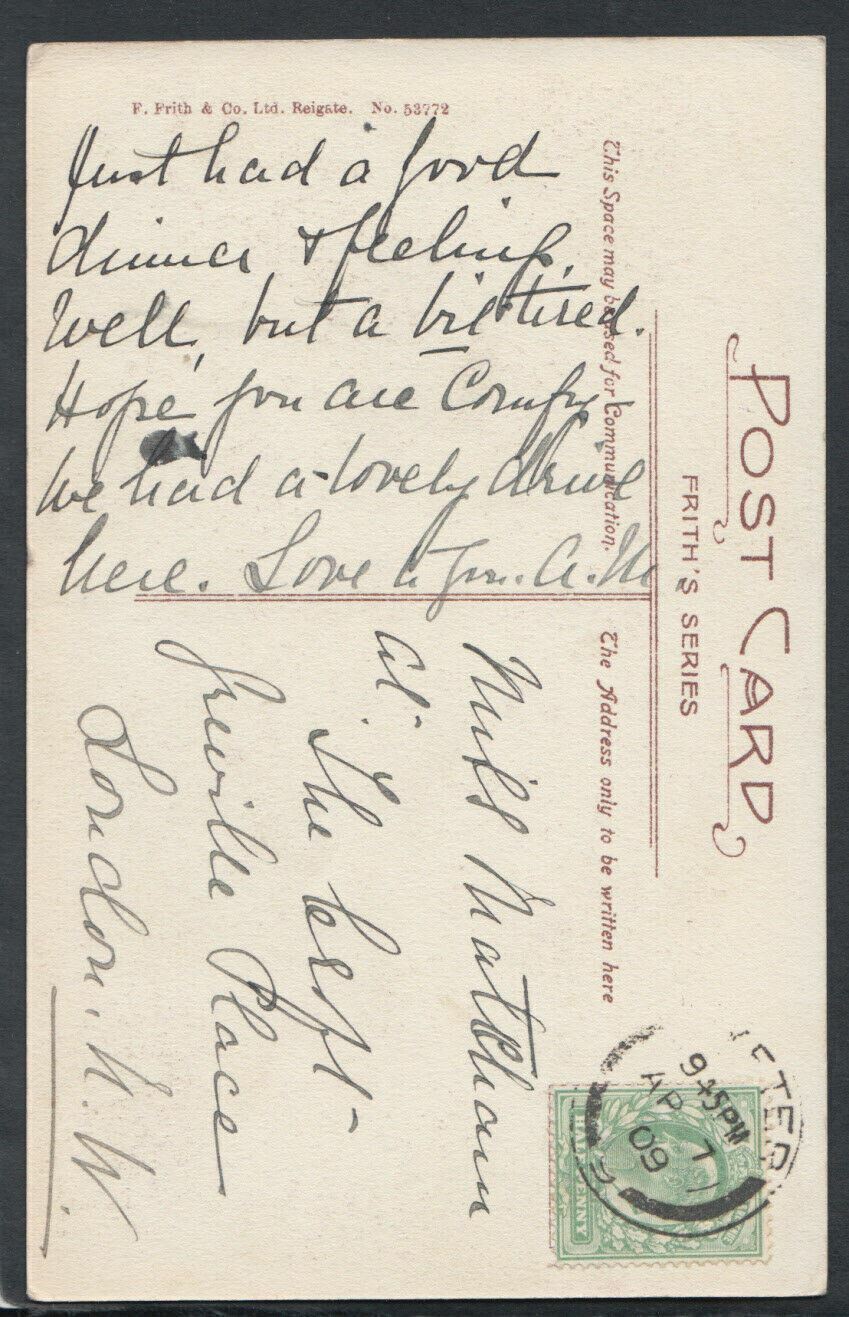 F. Frith & Co. Ltd. Reigate. No. 53772
Just had a good
dinner & feeling
well, but a bit tired.
Hope you are Comfy
We had a lovely drive
here. Love to you. A.M
This Space may be used for Communication.
POST CARD
FRITH'S SERIES
The Address only to be written here
Miss
at
The Croft
Greville Place
London. N.W.
9 45 PM
AP 7
09
HALFPENNY